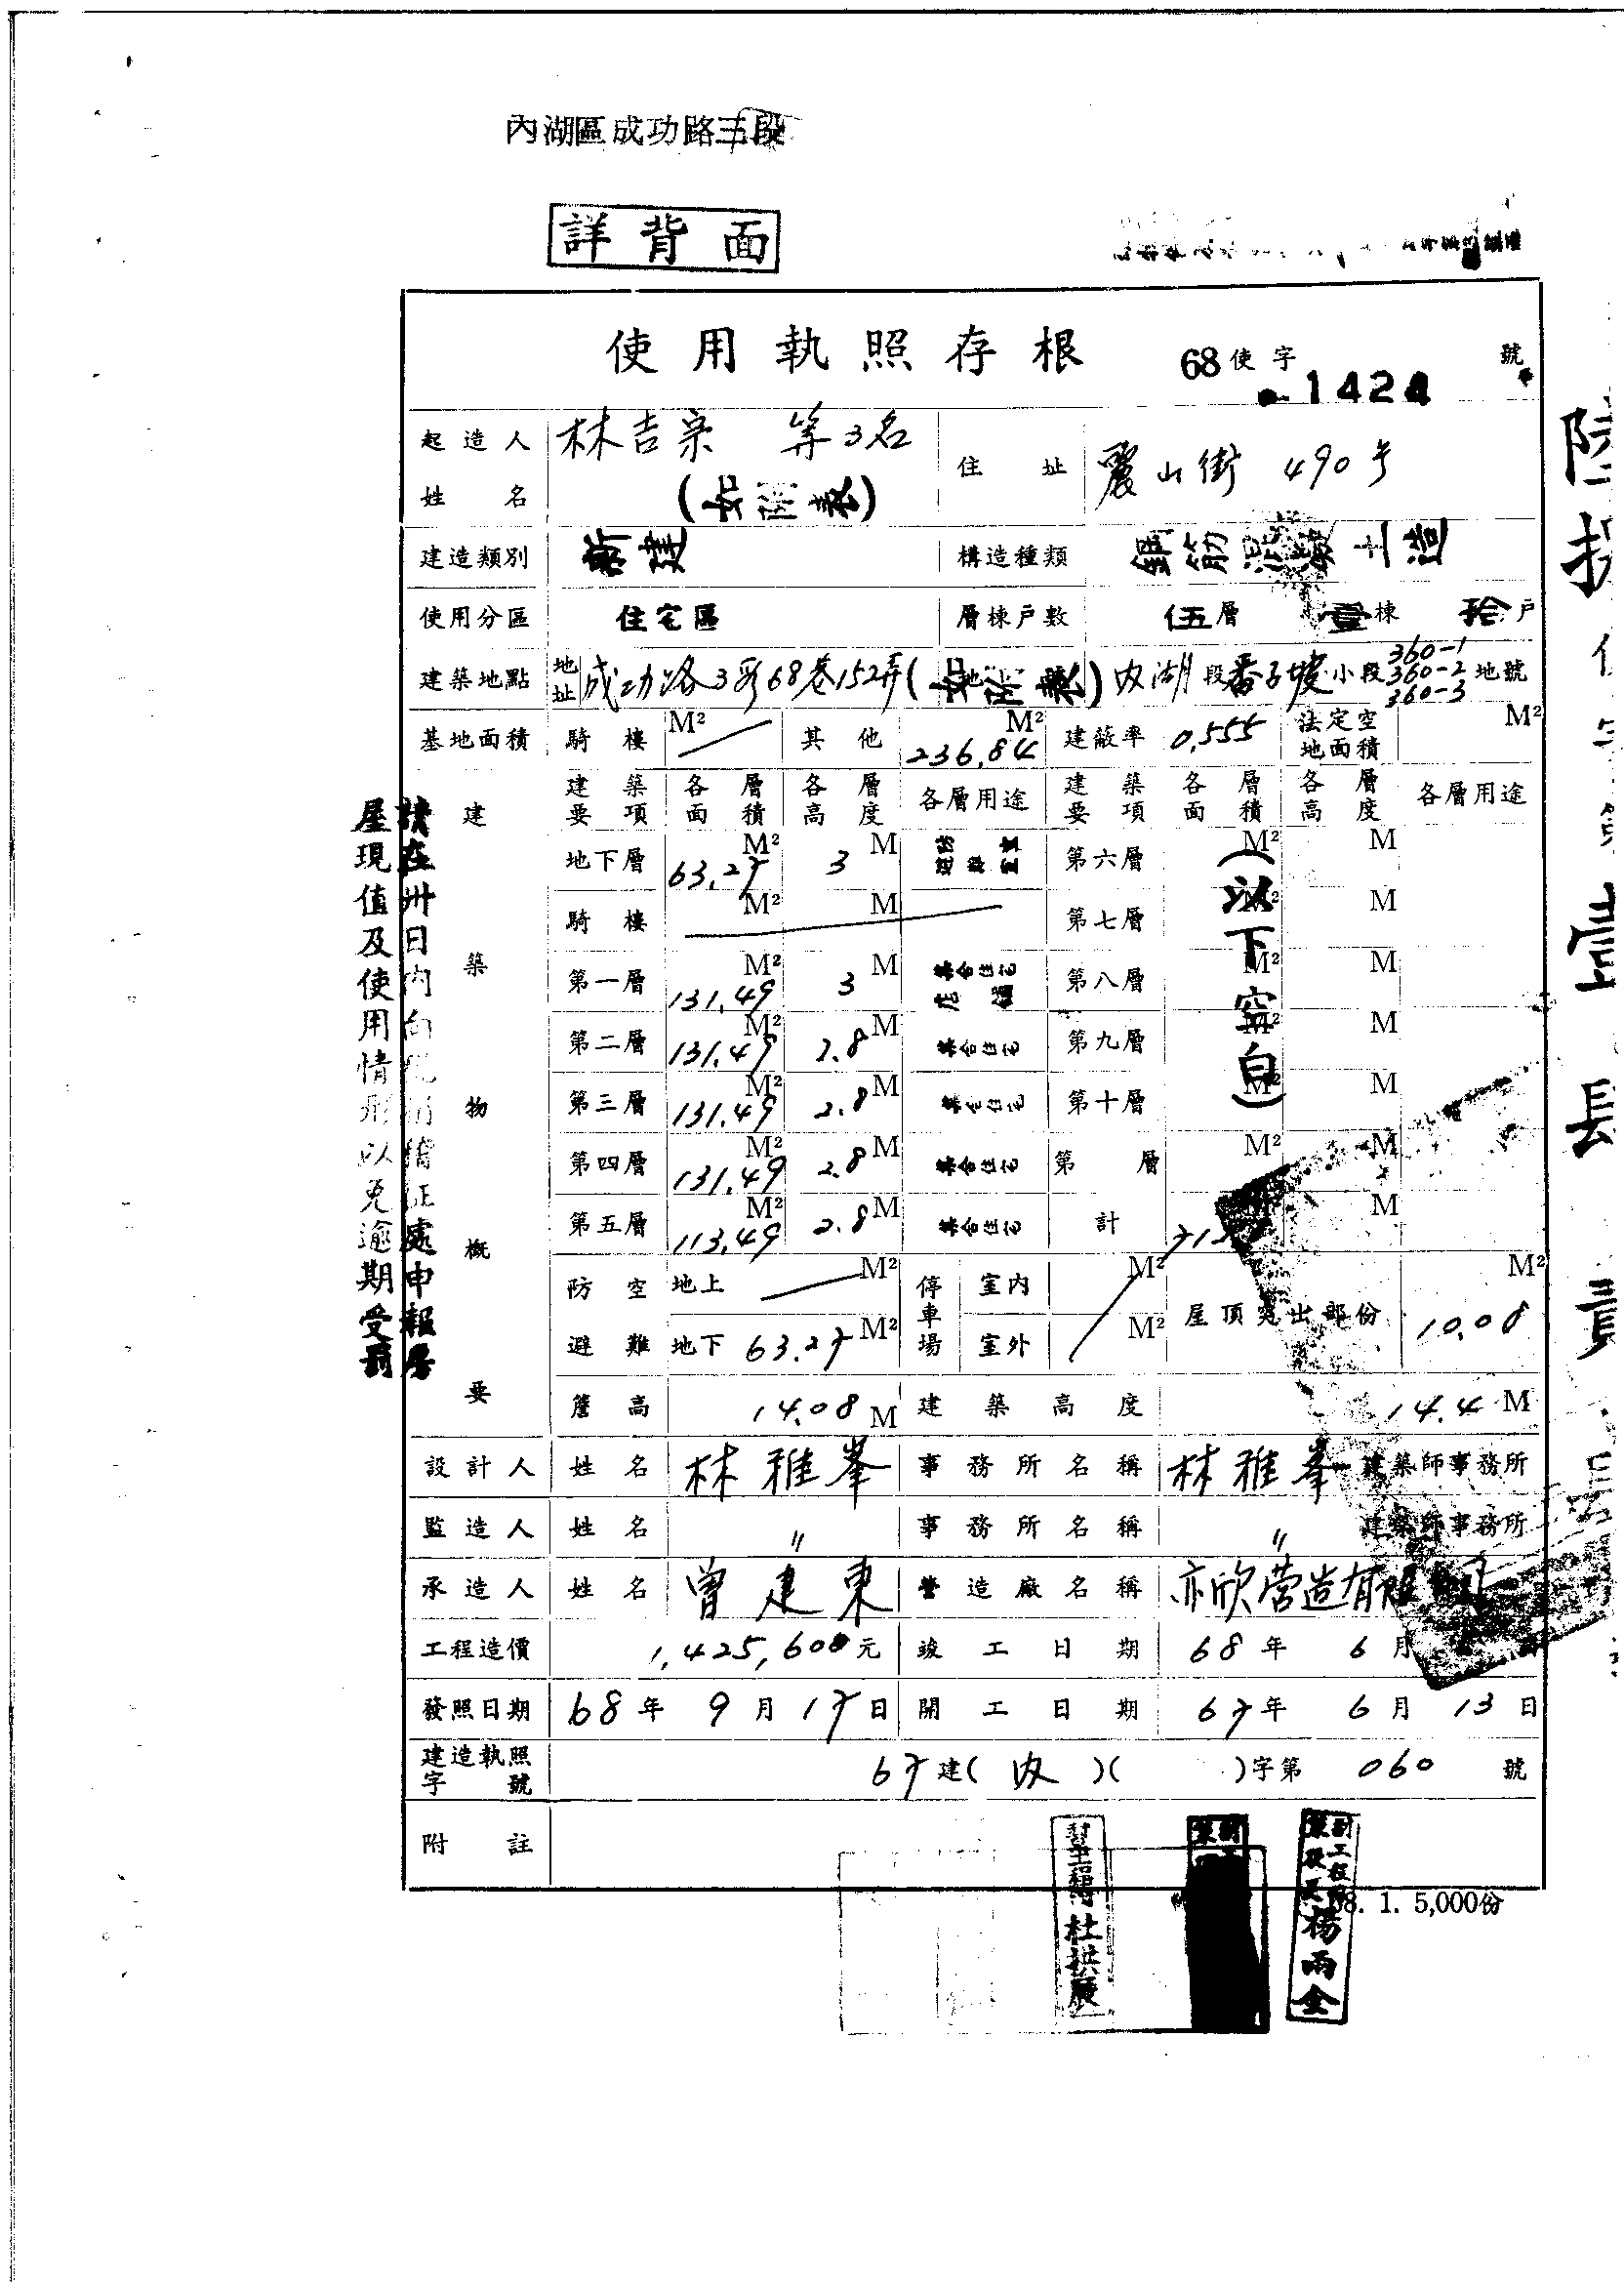 內湖區成功路三段
詳背面
使用執照存根 68使字 1424 號
起造人姓名 林吉宗 等3名 (如附表) 住址 麗山街 490号
建造類別 新建 構造種類 鋼筋混凝土造
使用分區 住宅區 層棟戶數 伍層 壹棟 拾戶
建築地點 地址 成功路3段68巷152弄(如附表) 內湖段番子坡小段 360-1 360-2 360-3 地號
基地面積 騎樓 M² 其他 236.84 M² 建蔽率 0.555 法定空地面積 M²
建築物概要
建築要項 各層面積 各層高度 各層用途 建築要項 各層面積 各層高度 各層用途
地下層 63.27 M² 3 M 第六層 M² M
騎樓 M² M 第七層 M² M
第一層 131.49 M² 3 M 集合住宅 店舖 第八層 M² M
第二層 131.49 M² 2.8 M 集合住宅 第九層 M² M
第三層 131.49 M² 2.8 M 集合住宅 第十層 M² M
第四層 131.49 M² 2.8 M 集合住宅 第 層 M² M
第五層 113.49 M² 2.8 M 集合住宅 計 M
(以下空白)
防空避難 地上 M² 停車場 室內 M² 屋頂突出部份 10.08 M²
地下 63.27 M² 室外 M²
簷高 14.08 M 建築高度 14.4 M
設計人 姓名 林雅峯 事務所名稱 林雅峯 建築師事務所
監造人 姓名 〃 事務所名稱 〃 建築師事務所
承造人 姓名 曾建東 營造廠名稱 亦欣营造有限
工程造價 1,425,600元 竣工日期 68年 6月
發照日期 68年 9月 17日 開工日期 67年 6月 13日
建造執照字號 67建(內)( )字第 060 號
附註
8. 1. 5,000份
請在卅日內向 稽征處申報房
屋現值及使用情形以免逾期受罰
杜拱辰
副工程師
楊雨金